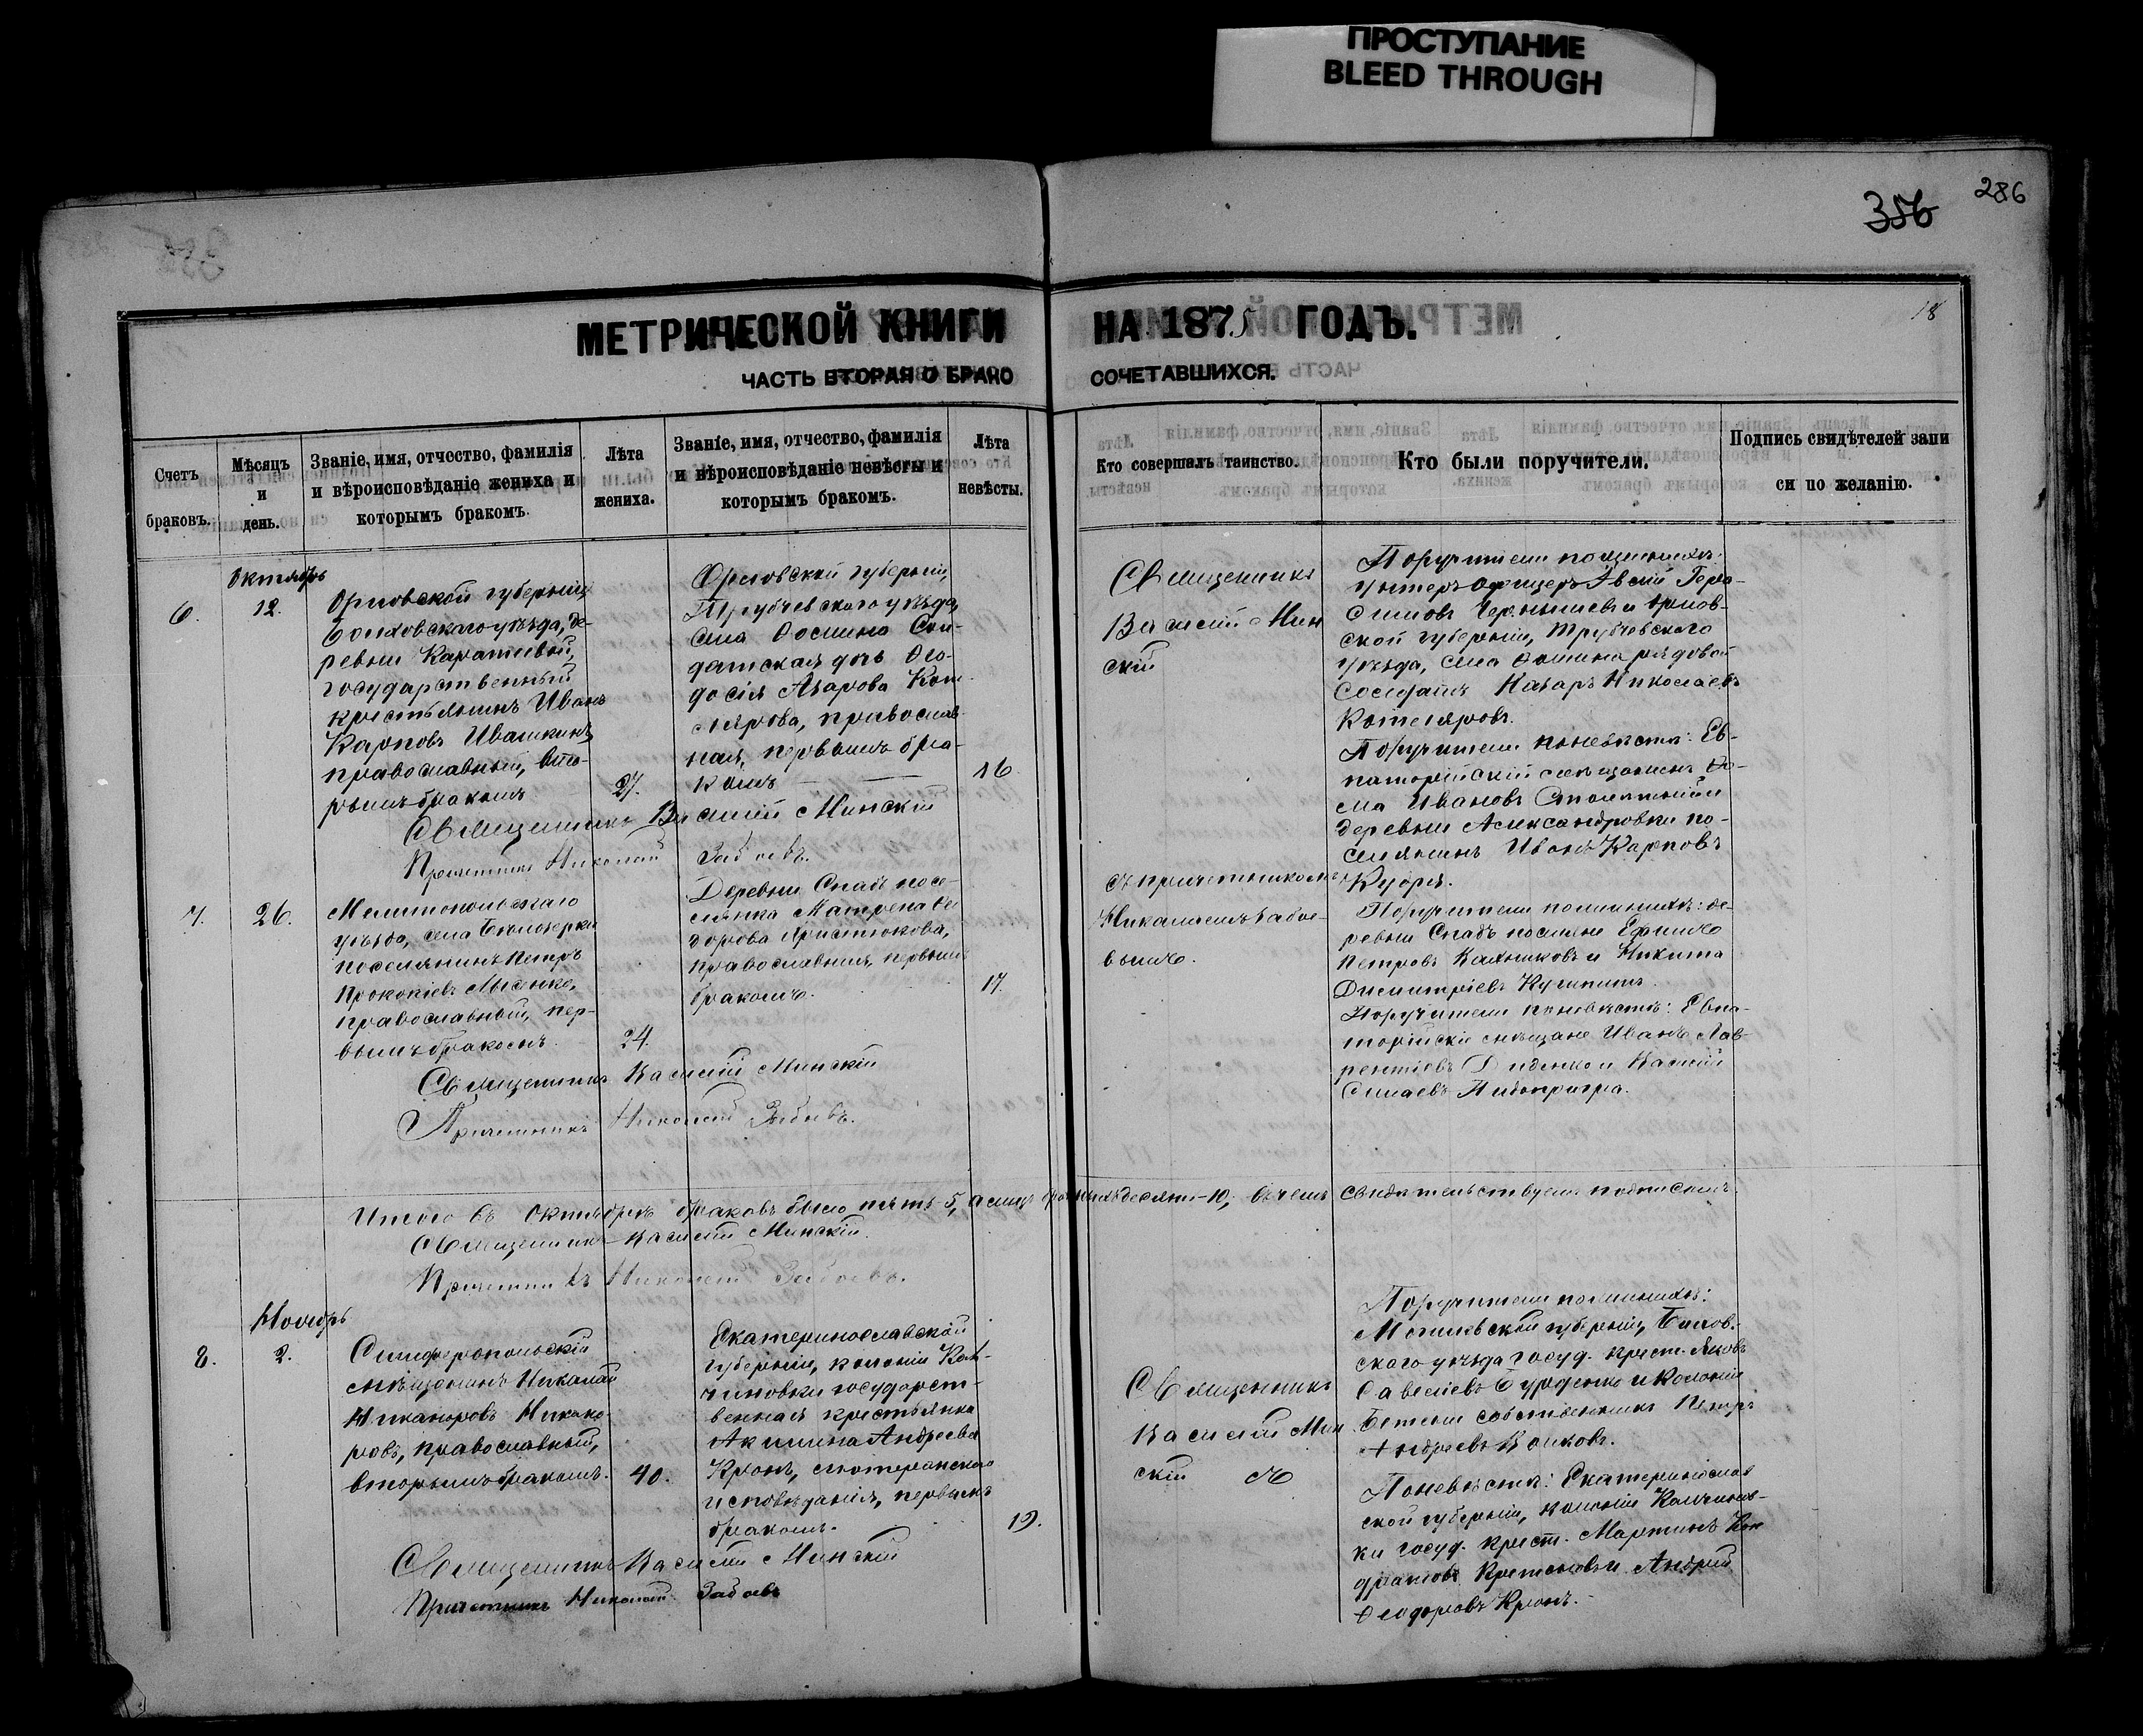 ПРОСТУПАНИЕ
BLEED THROUGH
286
356
18
МЕТРИЧЕСКОЙ КНИГИ НА 1875 ГОДЪ.
ЧАСТЬ ВТОРАЯ О БРАКО СОЧЕТАВШИХСЯ.
Счетъ
браковъ.
Мѣсяцъ
и
день.
Званіе, имя, отчество, фамилія
и вѣроисповѣданіе жениха и
которымъ бракомъ.
Лѣта
жениха.
Званіе, имя, отчество, фамилія
и вѣроисповѣданіе невѣсты и
которымъ бракомъ.
Лѣта
невѣсты.
Кто совершалъ таинство.
Кто были поручители.
Подпись свидѣтелей запи
си по желанію.
Октябрь
6.
12.
Орловской губерніи,
Болховскаго уѣзда, де-
ревни
государственный
крестьянинъ Иванъ
Карповъ Ивашкинъ,
православный, вто-
рымъ бракомъ
27.
Орловской губерніи,
Трубчевскаго уѣзда,
села Сол-
датская дочь Ѳео-
досія Азарова Кот-
лярова, православ-
ная, первымъ бра-
комъ
16
Священникъ
Василій Мин
скій
Поручители по женихѣ:
унтеръ офицеръ Гера-
симовъ и Орлов-
ской губерніи, Трубчевскаго
уѣзда, села рядовой
Солдатъ Назаръ Николаевъ
Котляровъ.
Поручители по невѣстѣ: Ев-
паторійскій мѣщанинъ Ѳо-
ма Ивановъ и
деревни Александровки по-
селянинъ Иванъ Карповъ
Священникъ Василій Минскій
Причетникъ Николай Забоевъ.
7.
26.
Мелитопольскаго
уѣзда, села Бѣлозерки
поселянинъ Петръ
Прокопіевъ
православный, пер-
вымъ бракомъ.
24.
Деревни Спатъ посе-
лянка Матрена Ѳе
дорова
православная, первымъ
бракомъ.
17.
съ причетникомъ
Николаемъ Забое-
вымъ.
Поручители по женихѣ: де-
ревни Спатъ поселяне Ефимъ
Петровъ и Никита
Димитріевъ
Поручители по невѣстѣ: Евпа-
торійскіе мѣщане Иванъ Лав-
рентіевъ Диденко и Василій
Священникъ Василій Минскій
Причетникъ Николай Забоевъ.
Итого въ Октябрѣ браковъ было пять-5, а лицъ десять-10, въ чемъ свидѣтельствуемъ подписомъ.
Священникъ Василій Минскій.
Причетникъ Николай Забоевъ.
Ноябрь
8.
2.
Симферопольскій
мѣщанинъ Николай
Никаноровъ Никано-
ровъ, православный,
вторымъ бракомъ.
40.
Екатеринославской
губерніи, колоніи Каль-
чиновки государст-
венная крестьянка
Акилина Андреева
Кронъ, лютеранскаго
исповѣданія, первымъ
бракомъ.
19.
Священникъ
Василій Мин
скій
Поручители по женихѣ:
Могилевской губерніи,
скаго уѣзда госуд. крест. Яковъ
Савеліевъ и Колоніи
собственникъ Петръ
Андреевъ Волковъ.
По невѣстѣ: Екатеринослав
ской губерніи, колоніи Кальчинов-
ки госуд. крест. Мартинъ Кон
дратовъ и Андрей
Ѳеодоровъ Кронъ.
Священникъ Василій Минскій
Причетникъ Николай Забоевъ